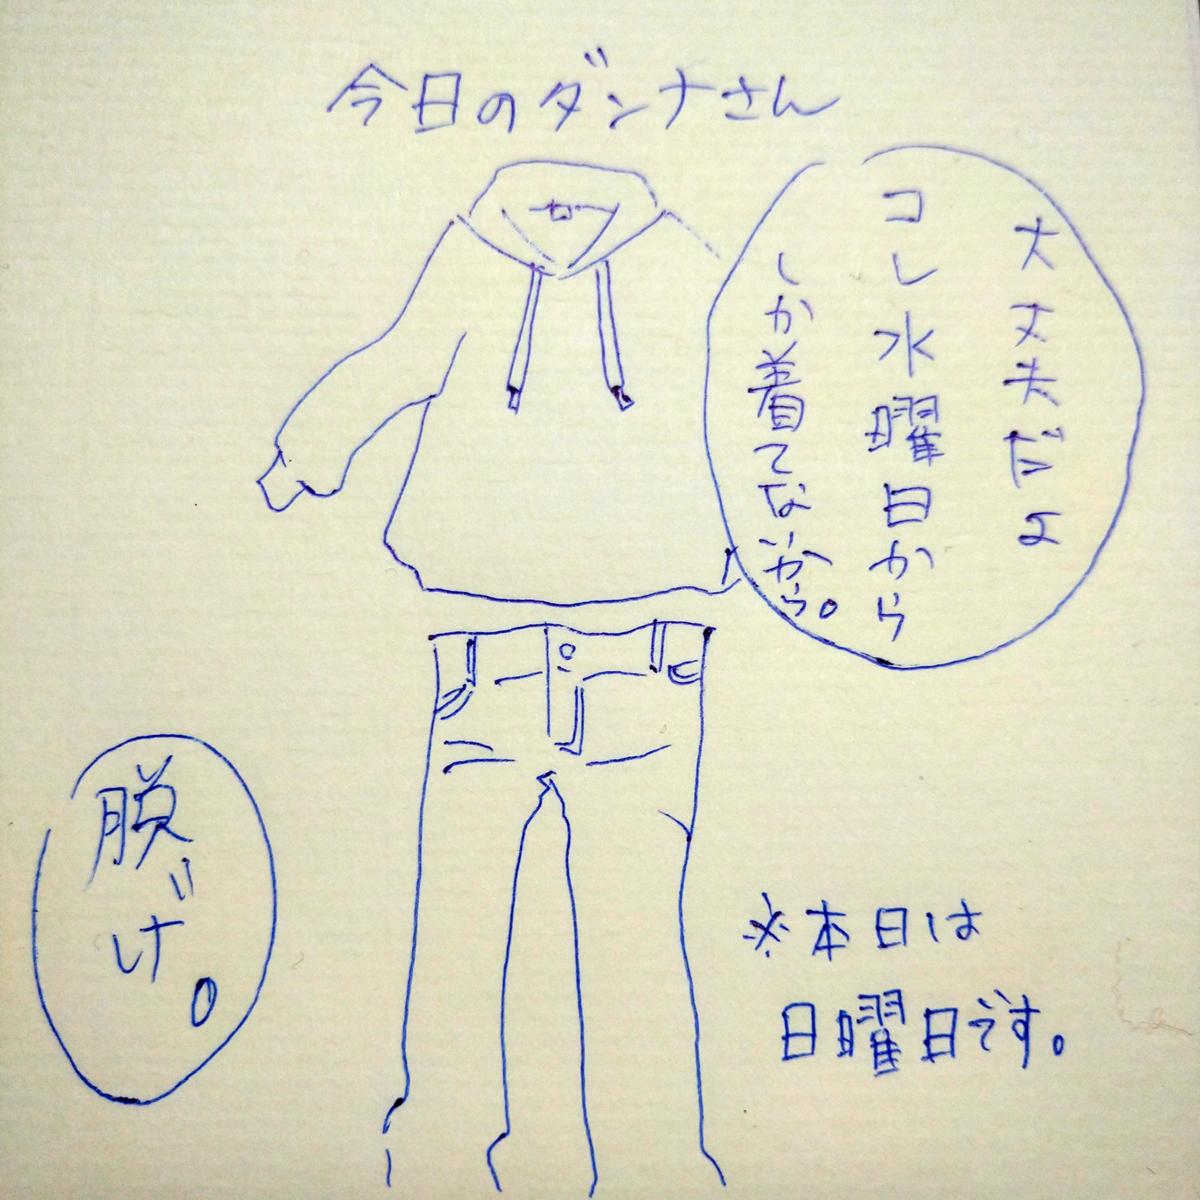 今日のダンナさん
大丈夫だよ
コレ水曜日から
しか着てないから。
脱げ。
※本日は
日曜日です。